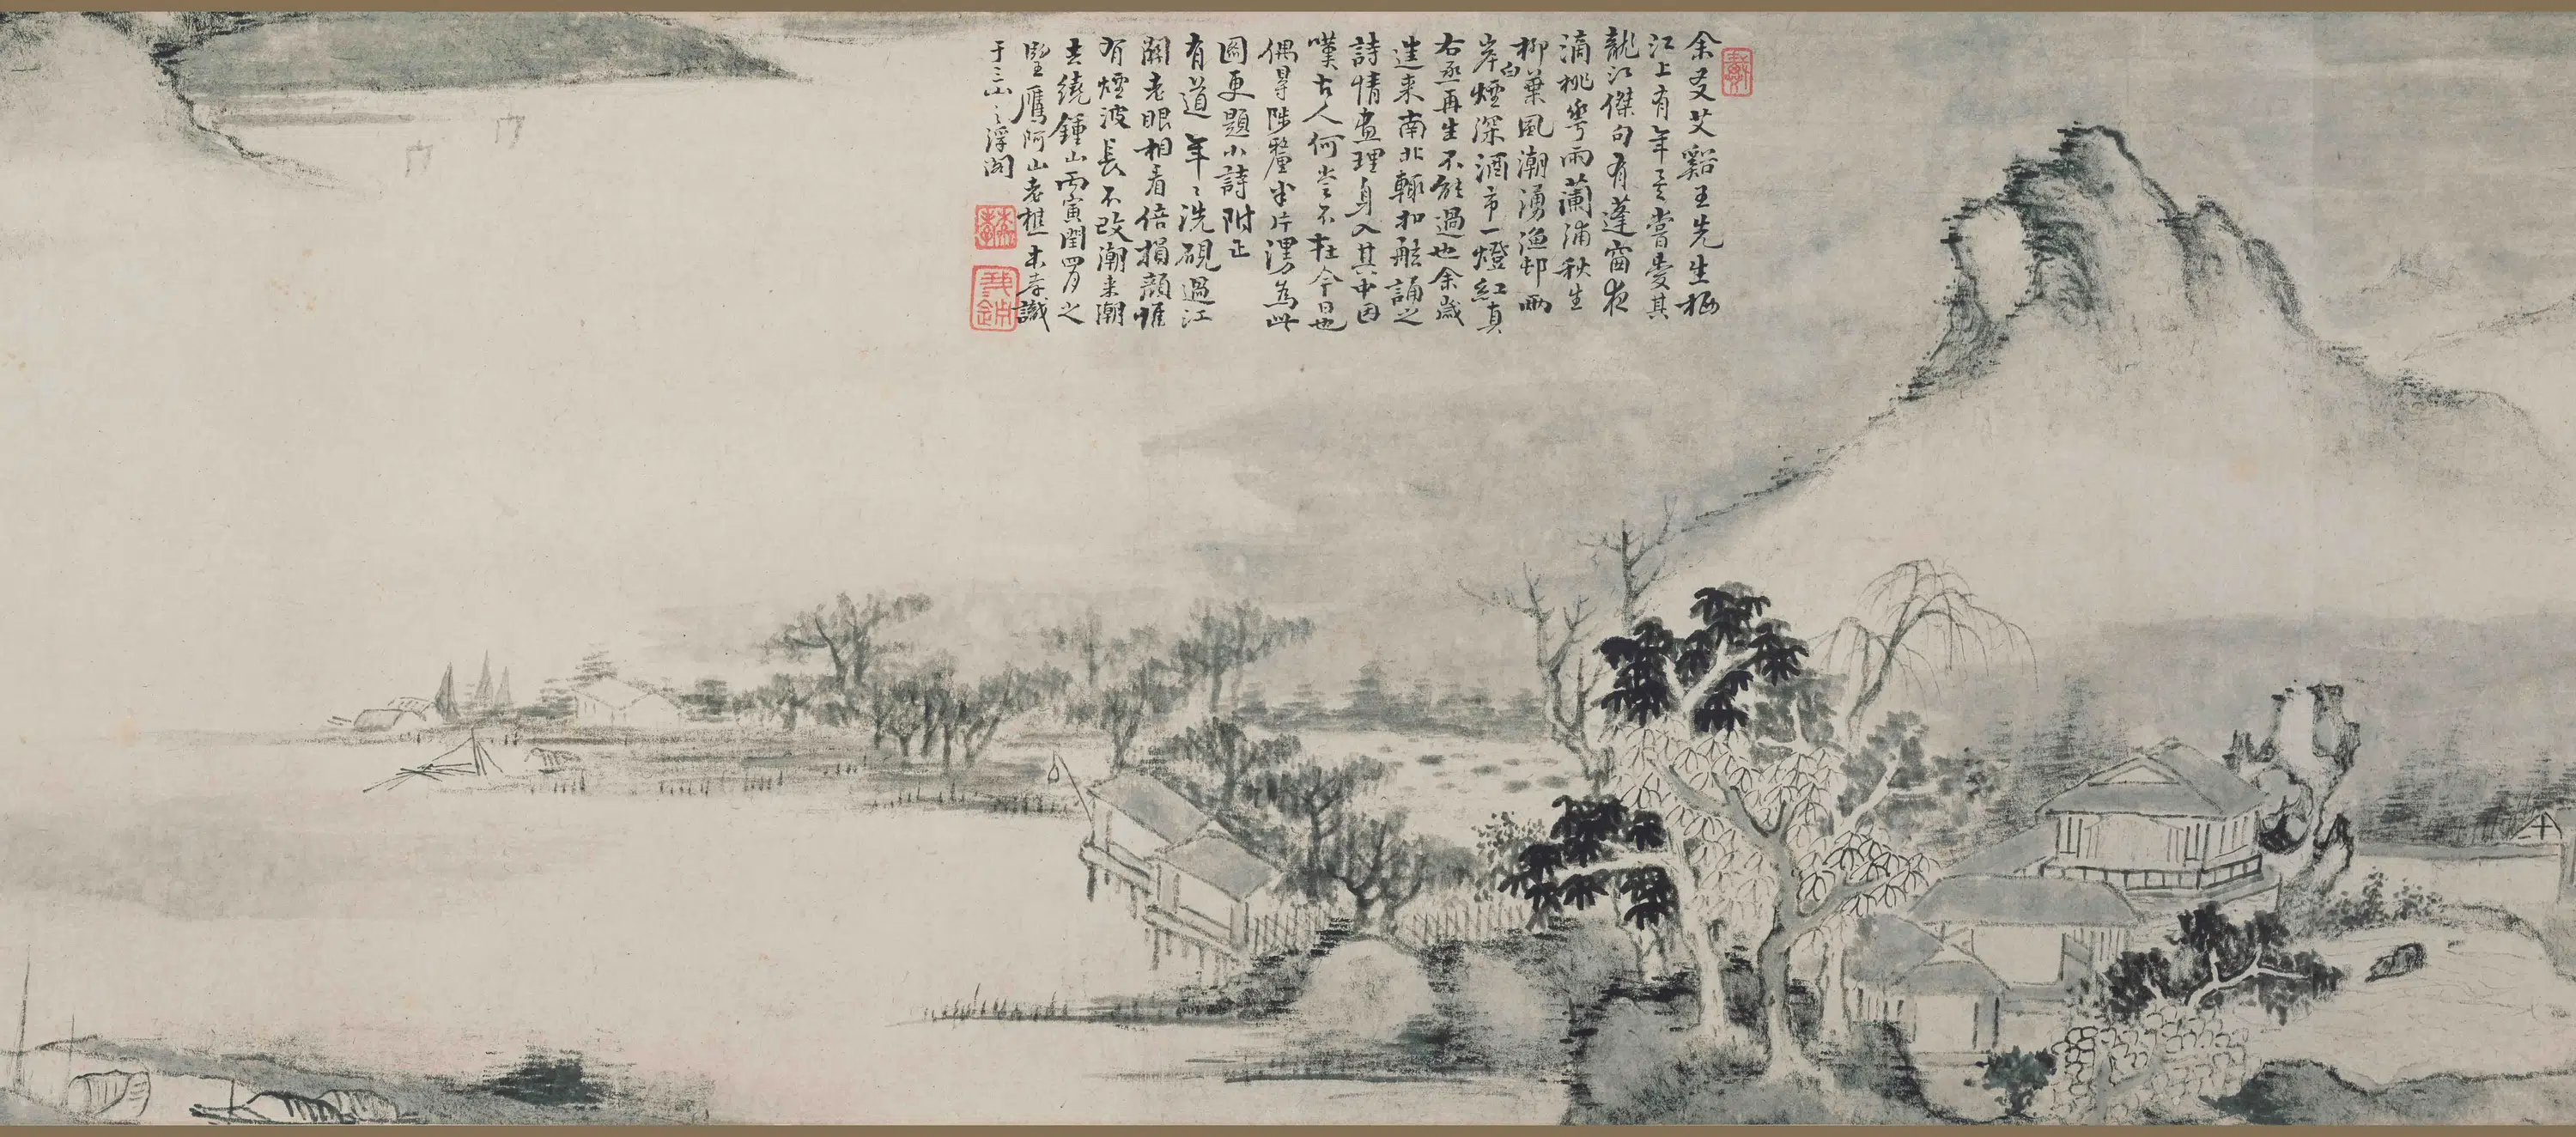 余友艾谿王先生栖
江上有年予嘗愛其
龍江傑句有蓬窗夜
滴桃笙雨蘭浦秋生
柳葉風潮湧漁邨兩
岸白煙深酒市一燈紅真
右丞再生不能過也余歲
往來南北輒扣舷誦之
詩情畫理身入其中因
嘆古人何嘗不在今日也
偶尋陟釐半片漫為此
圖更題小詩附正
有道年〻洗硯過江
關老眼相看倍損顏惟
有煙波長不改潮來潮
去繞鍾山丙寅閏四月之
望鷹阿山老樵本孝識
于三山之浮閣